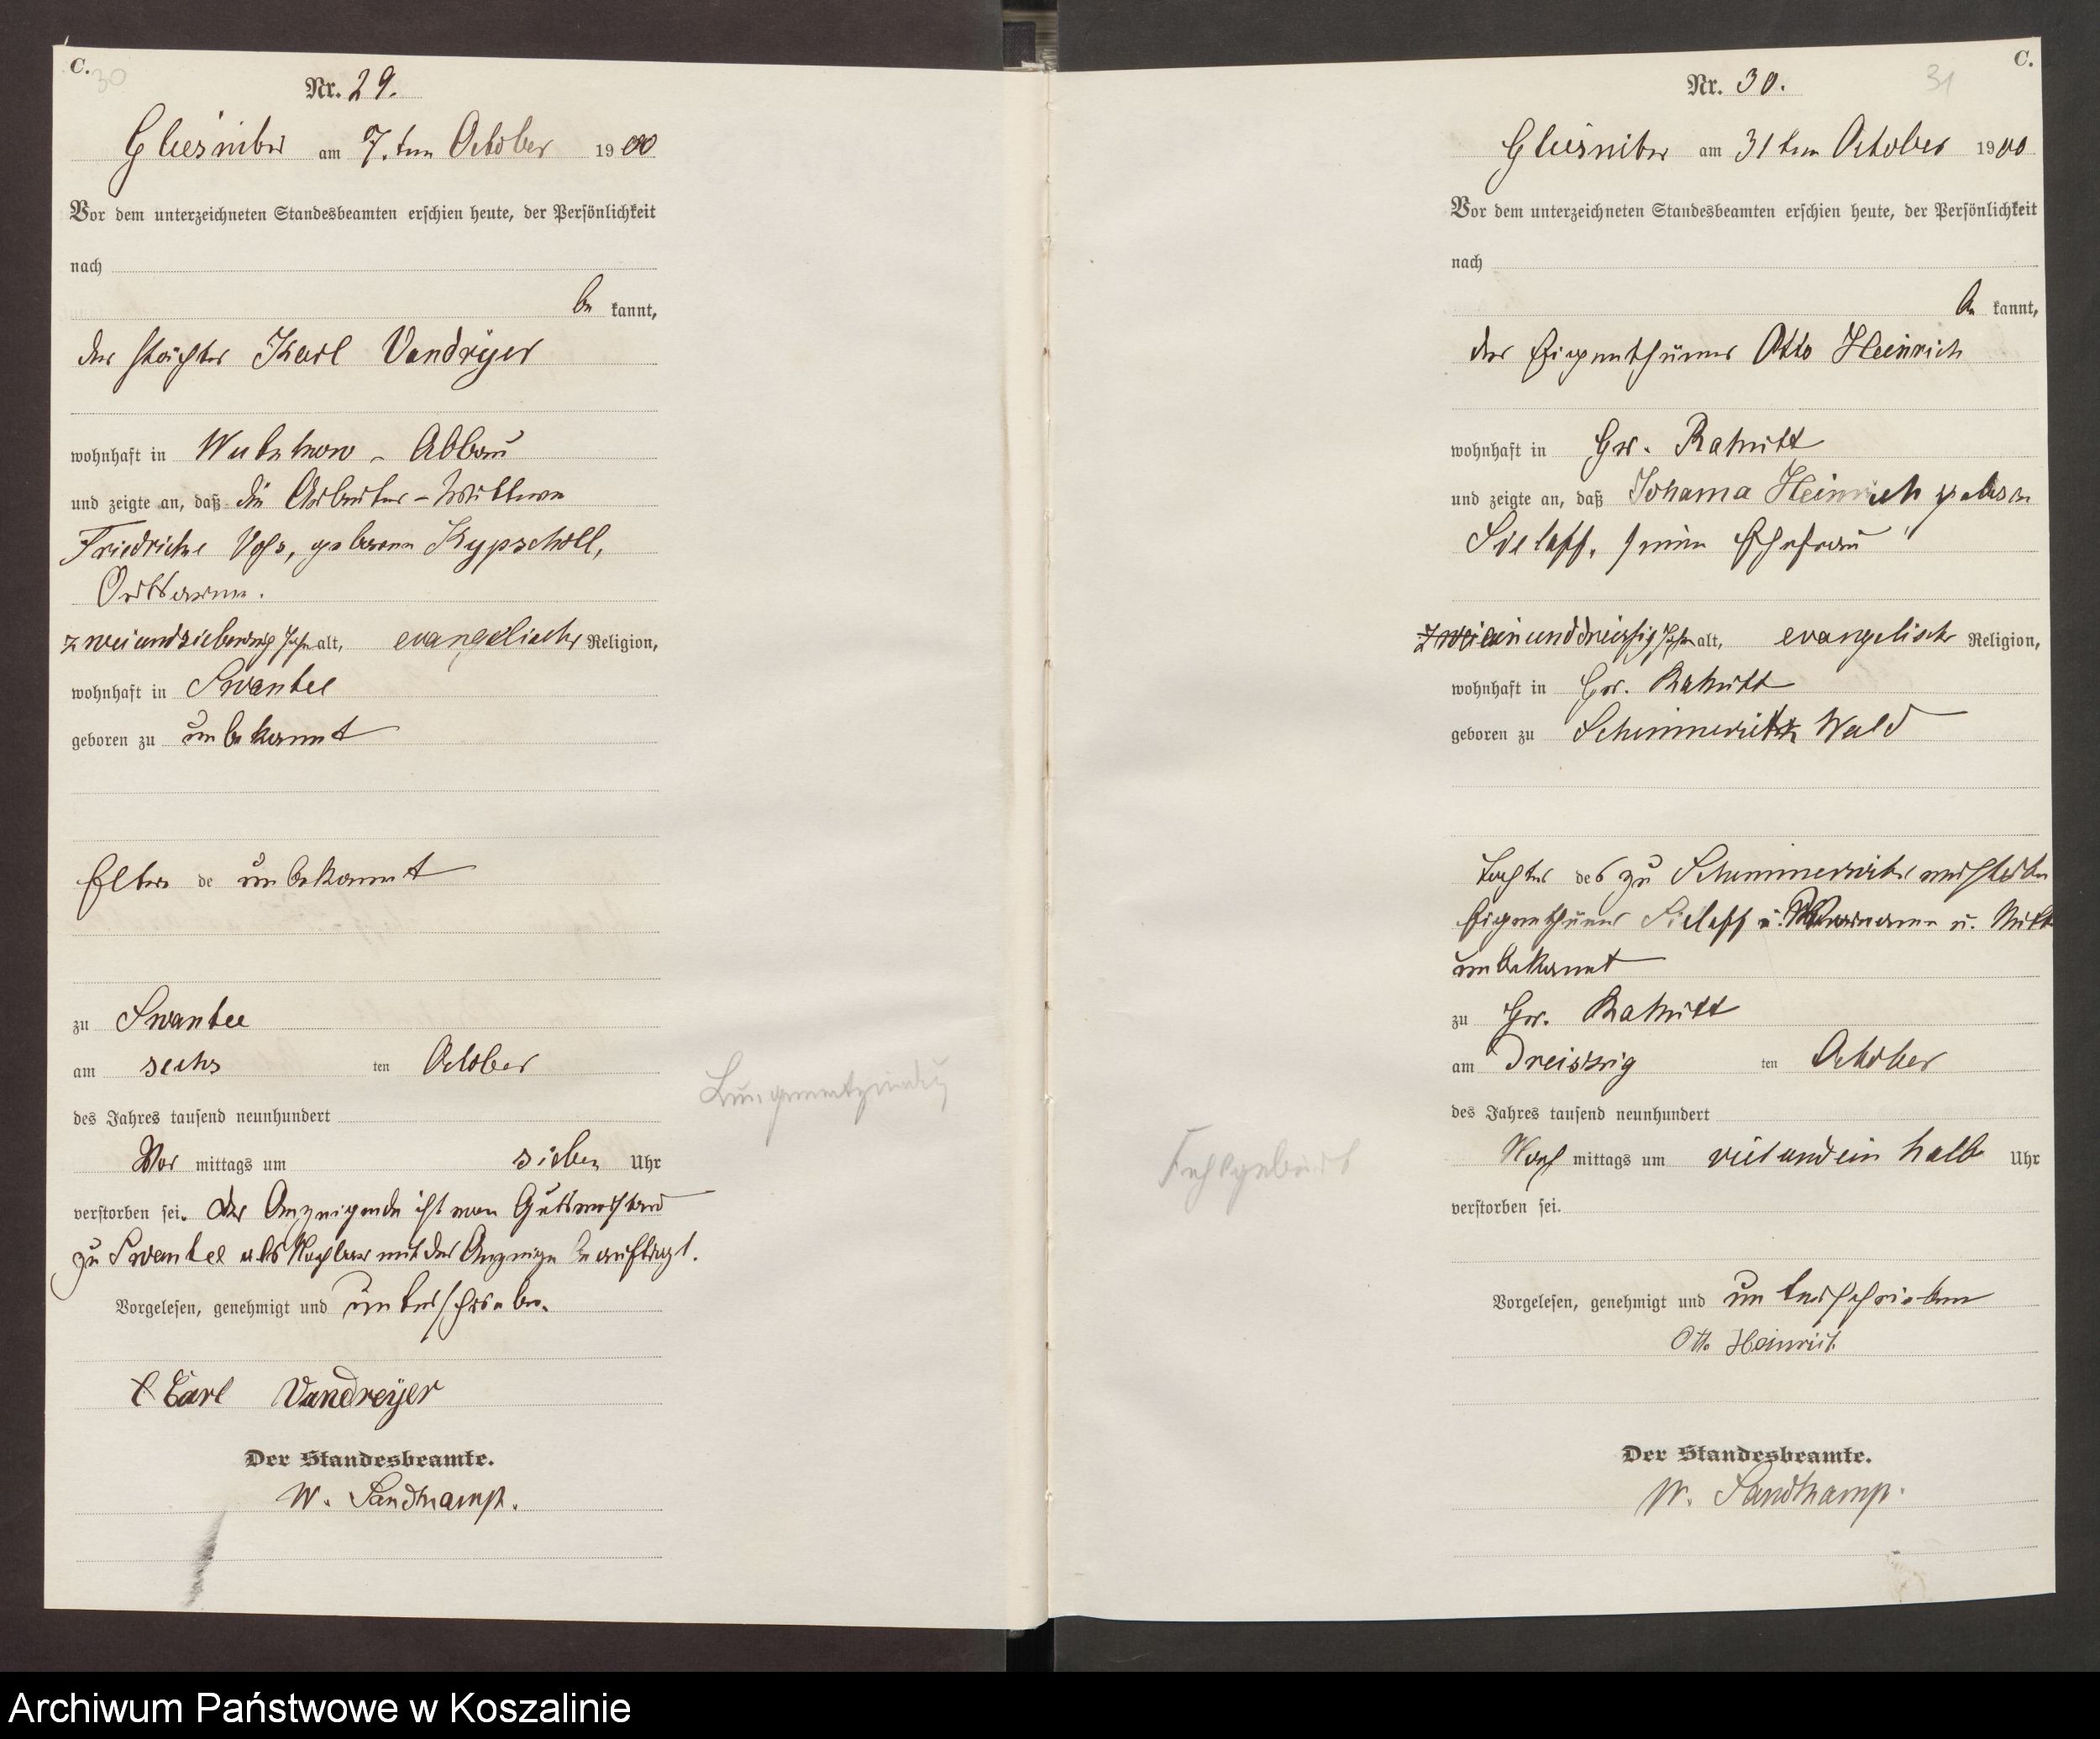 C.
30
Nr. 29.
Gliesnitz am 7. ten October 1900
Vor dem unterzeichneten Standesbeamten erschien heute, der Persönlichkeit
nach
be kannt,
der Pächter Karl Vandreyer
wohnhaft in Wutzkow - Abbau
und zeigte an, daß die Arbeiter-Wittwe
Friederike Voss, geborene Kypscholl,
Ortsarme.
zweiundsiebenzig Jahr alt, evangelischer Religion,
wohnhaft in Swantee
geboren zu unbekannt
Eltern de unbekannt
zu Swantee
am sechs ten October
des Jahres tausend neunhundert
Vor mittags um sieben Uhr
verstorben sei. Der Anzeigende ist vom Gutsvorstand
zu Swantee als Nachbar mit der Anzeige beauftragt.
Vorgelesen, genehmigt und unterschrieben.
Carl Vandreyer
Der Standesbeamte.
W. Sandkamp.
Lungenentzündung
C.
31
Nr. 30.
Gliesnitz am 31 ten October 1900
Vor dem unterzeichneten Standesbeamten erschien heute, der Persönlichkeit
nach
be kannt,
der Eigenthümer Otto Heinrich
wohnhaft in Gr. Rakitt
und zeigte an, daß Johanna Heinrich geboren
Sielaff, seine Ehefrau
einunddreissig Jahr alt, evangelisch Religion,
wohnhaft in Gr. Rakitt
geboren zu Schimmeritz Wald
Tochter des zu Schimmeritz verstorbenen
Eigenthümer Sielaff Vorname u. Mutter
unbekannt
zu Gr. Rakitt
am Dreissig ten October
des Jahres tausend neunhundert
Nach mittags um vier undein halb Uhr
verstorben sei.
Fehlgeburt
Vorgelesen, genehmigt und unterschrieben
Otto Heinrich
Der Standesbeamte.
W. Sandkamp.
Archiwum Państwowe w Koszalinie